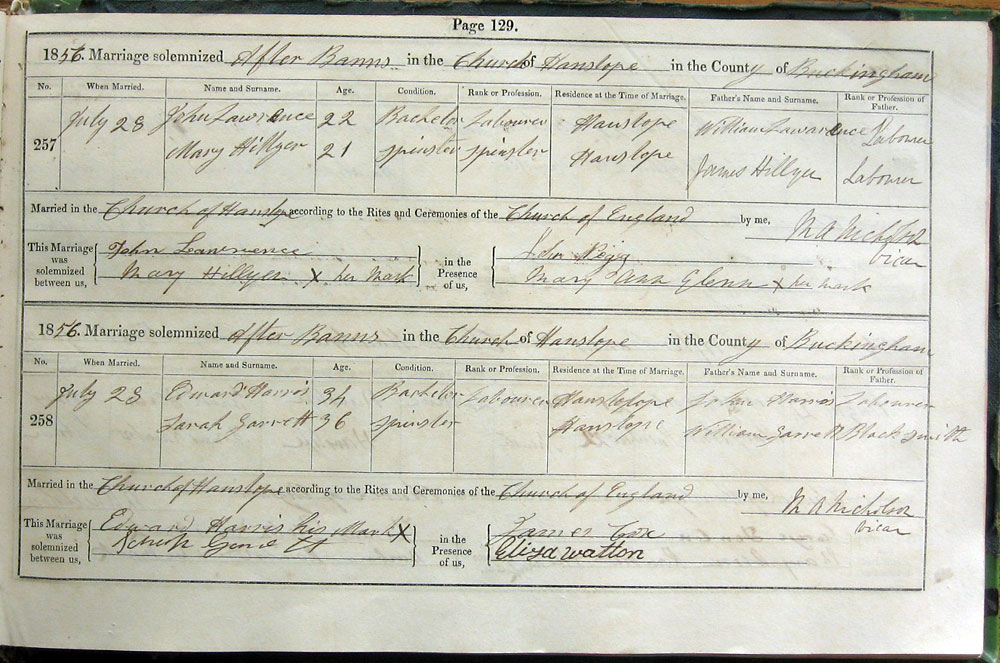 Page 129.
1856. Marriage solemnized After Banns in the Church of Hanslope in the County of Buckingham
No. When Married. Name and Surname. Age. Condition. Rank or Profession. Residence at the Time of Marriage. Father's Name and Surname. Rank or Profession of Father.
257 July 28 John Lawrence 22 Bachelor Labourer Hanslope William Lawarence Labourer
Mary Hillyer 21 spinster spinster Hanslope James Hillyer Labourer
Married in the Church of Hanslope according to the Rites and Ceremonies of the Church of England by me, M A Nicholson
Vicar
This Marriage was solemnized between us, John Lawrence in the Presence of us, John
Mary Hillyer X her Mark Mary Ann Glenn X her mark
1856. Marriage solemnized After Banns in the Church of Hanslope in the County of Buckingham
No. When Married. Name and Surname. Age. Condition. Rank or Profession. Residence at the Time of Marriage. Father's Name and Surname. Rank or Profession of Father.
258 July 28 Edward Harris 34 Bachelor Labourer Hanslopope John Harris Labourer
Sarah Garrett 36 spinster Hanslope William Garrett Black Smith
Married in the Church of Hanslope according to the Rites and Ceremonies of the Church of England by me, M A Nicholson
Vicar
This Marriage was solemnized between us, Edward Harris his Mark X in the Presence of us, James Cox
Eliza Watton